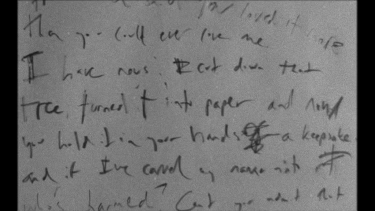 you loved it more
than you could ever love me
I have news: I cut down that
tree, turned it into paper and now
you hold it in your hands a keepsake
and if I've carved my name into it
who's harmed? Can't you admit that